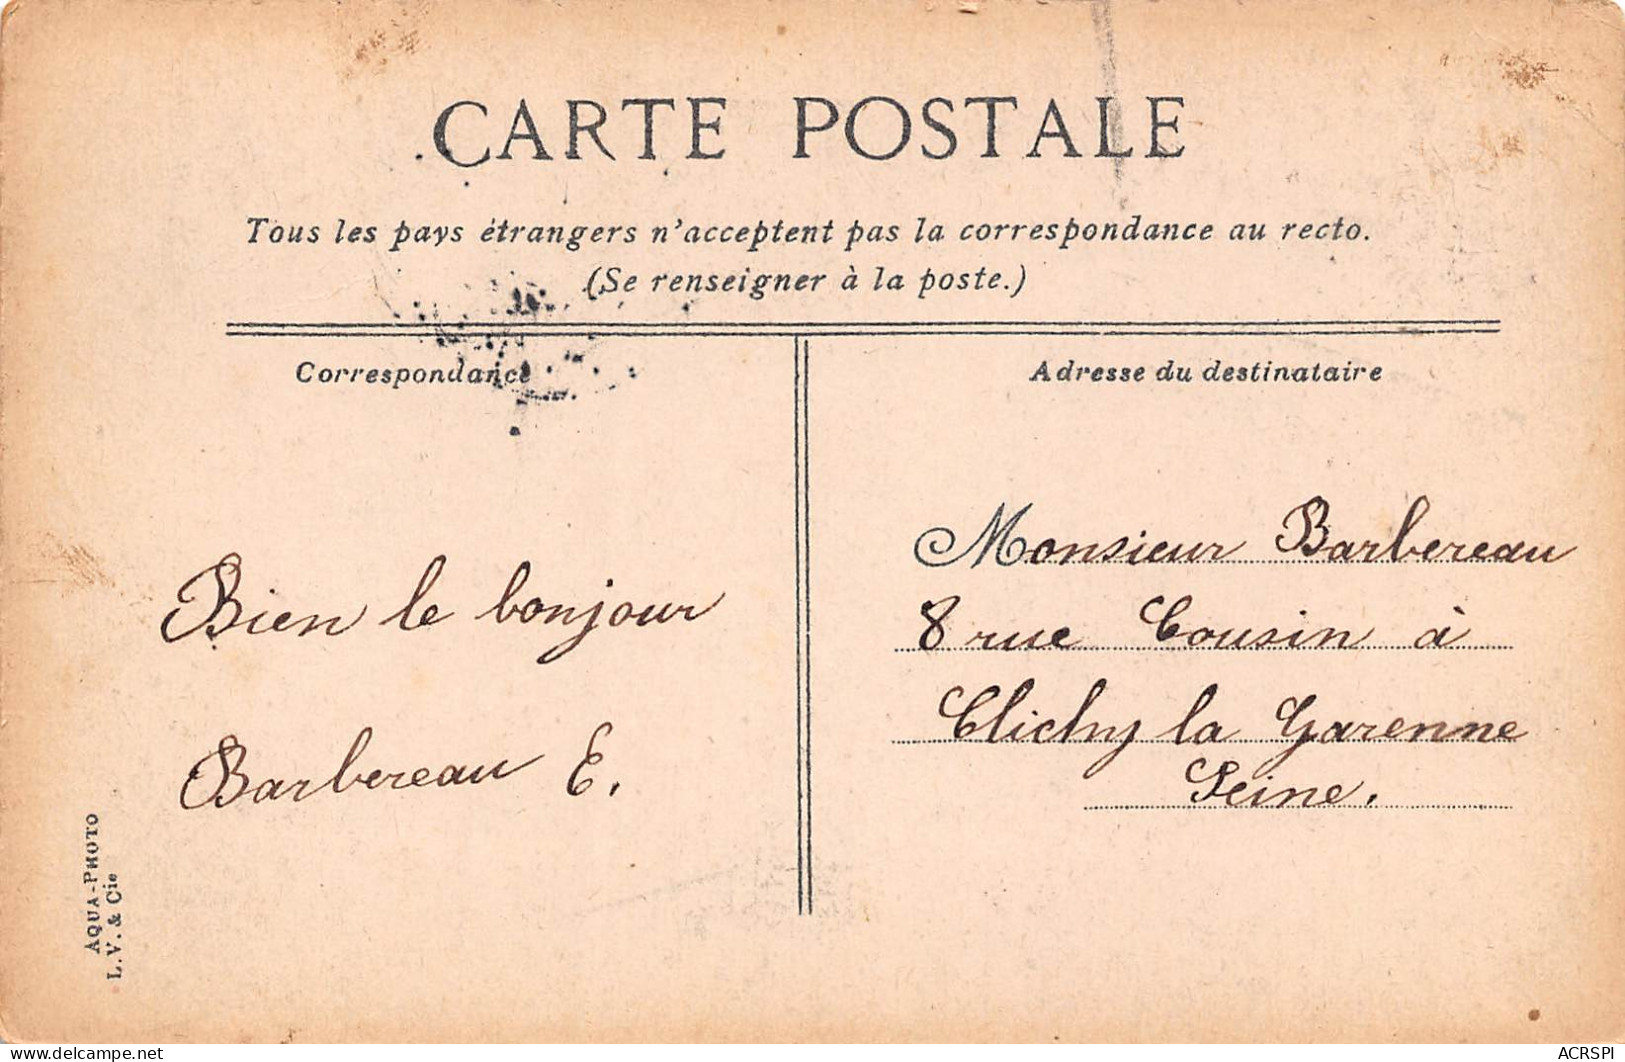 CARTE POSTALE
Tous les pays étrangers n'acceptent pas la correspondance au recto.
(Se renseigner à la poste.)
Correspondance
Adresse du destinataire
Bien le bonjour
Barbereau E.
Monsieur Barbereau
8 rue Cousin à
Clichy la Garenne
Seine.
AQUA-PHOTO
L.V. & Cie
delcampe.net
ACRSPI